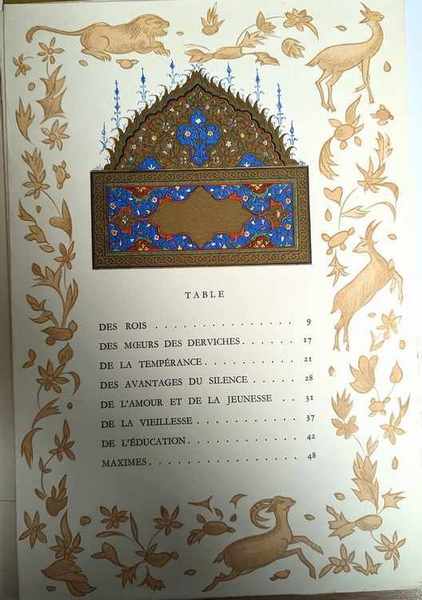 TABLE
DES ROIS . . . . . . . . . . . . . . . 9
DES MŒURS DES DERVICHES . . . . . . 17
DE LA TEMPÉRANCE . . . . . . . . . . 21
DES AVANTAGES DU SILENCE . . . . . 28
DE L'AMOUR ET DE LA JEUNESSE . . 31
DE LA VIEILLESSE . . . . . . . . . . . 37
DE L'ÉDUCATION . . . . . . . . . . . . 42
MAXIMES . . . . . . . . . . . . . . . . 48